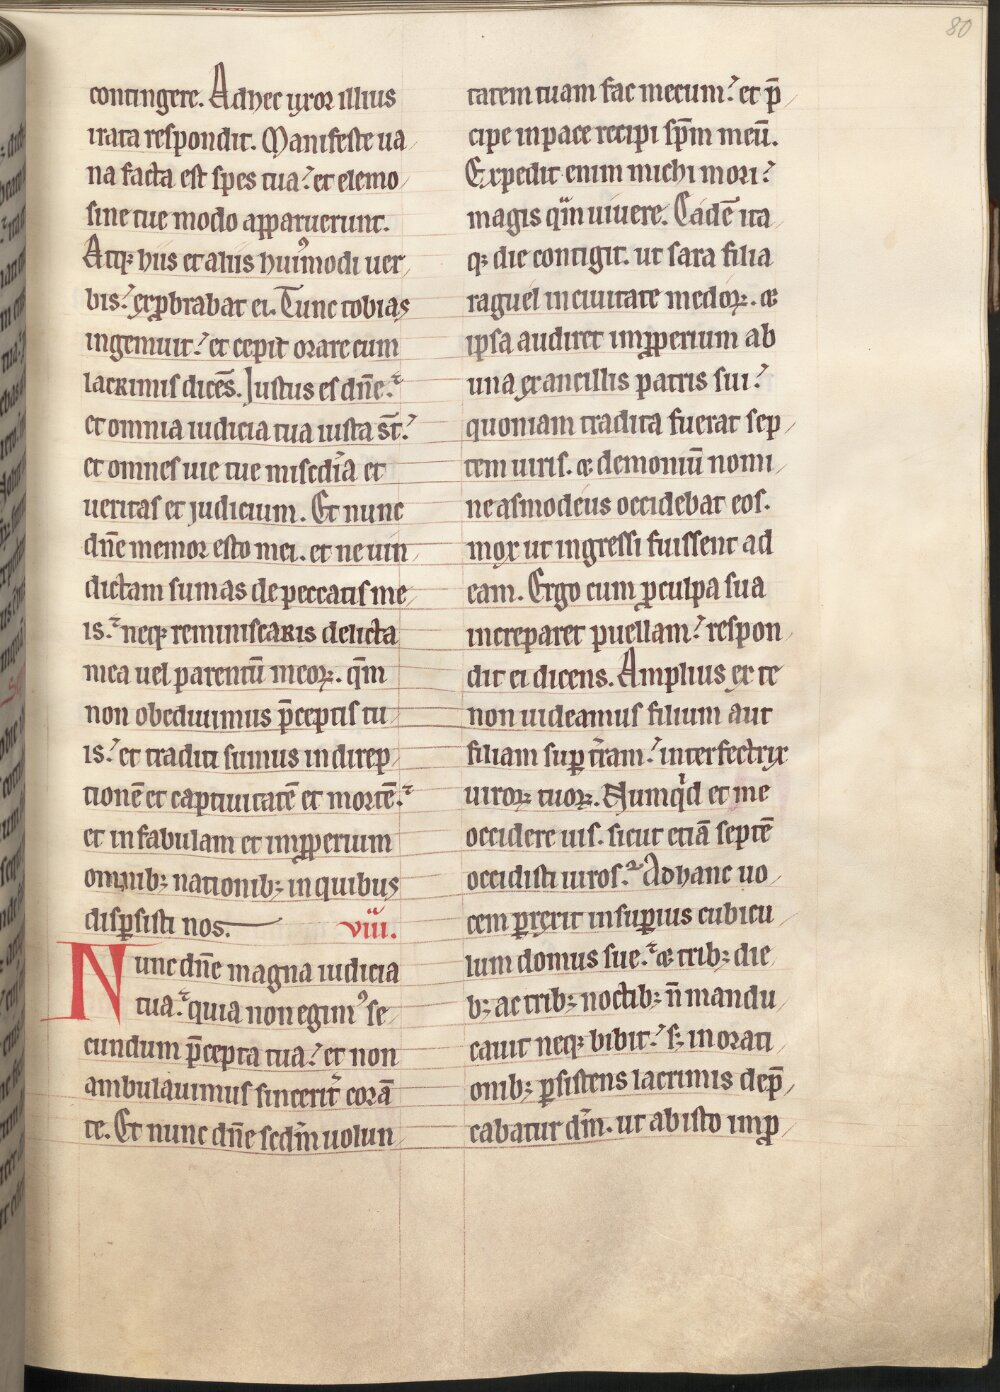 80
contingere. Ad hec uxor illius
irata respondit. Manifeste ua
na facta est spes tua? et elemo
sine tue modo apparuerunt.
Atq; hiis et aliis hui9modi uer
bis? exp̱brabat ei. Tunc tobias
ingemuit? et cepit orare cum
lacrimis dicēs. Justus es dn̄e?
et omnia iudicia tua iusta st̄?
et omnes uie tue misc̄dia et
ueritas et judicium. Et nunc
dn̄e memor esto mei. et ne uin
dictam sumas de peccatis me
is? neq; reminiscaris delicta
mea uel parentū meoꝝ. qm̄
non obediuimus p̄ceptis tu
is? et traditi sumus in direp
tionē et captiuitatē et mortē?
et in fabulam et imꝓperium
omnib; nationib; in quibus
disꝑsisti nos. viii.
Nunc dn̄e magna iudicia
tua? quia non egim9 se
cundum p̄cepta tua? et non
ambulauimus sincerit̄ corā
te. Et nunc dn̄e scd̄m uolun
tatem tuam fac mecum? et p̄
cipe in pace recipi sp̄m meū.
Expedit enim michi mori?
magis qm̄ uiuere. Eadē ita
q; die contigit. ut sara filia
raguel in ciuitate medoꝝ. &
ipsa audiret imꝓperium ab
una ex ancillis patris sui?
quoniam tradita fuerat sep
tem uiris. & demoniū nomi
ne asmodeus occidebat eos.
mox ut ingressi fuissent ad
eam. Ergo cum ꝓ culpa sua
increparet puellam? respon
dit ei dicens. Amplius ex te
non uideamus filium aut
filiam suꝑ t̄ram? interfectrix
uiroꝝ tuoꝝ. Numqd̄ et me
occidere uis. sicut etiā septē
occidisti uiros? Ad hanc uo
cem ꝑrexit in suꝑius cubicu
lum domus sue? & trib; die
b; ac trib; noctib; n̄ mandu
cauit neq; bibit? s; in orati
onib; ꝑsistens lacrimis dep̄
cabatur dm̄. ut ab isto imꝓ